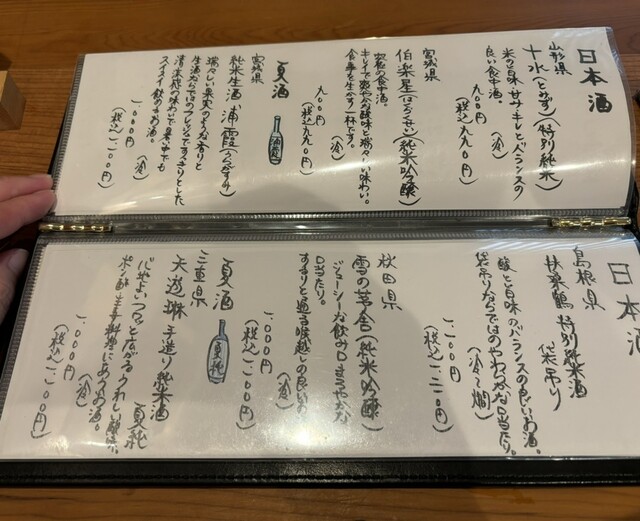 日本酒
山形県
十水(とみず)(特別純米)
米の旨味・甘サ・キレとバランスの
良い食中酒。
九〇〇円 (冷)
(税込)九九〇円)
宮城県
伯楽星(はくらくせい)(純米吟醸)
究極の食中酒。
キレイで爽やかな酸味と瑞々しい味わい。
食事を生かす一杯です。
九〇〇円 (冷)
(税込)九九〇円)
夏酒
宮城県
純米生酒 浦霞(うらかすみ)
瑞々しい果実のような香りと
生酒ならではのフレッシュですっきりとした
清涼感の味わいで暑い中でも
スイスイ飲めるお酒。
一、〇〇〇円 (冷)
(税込)一、一〇〇円)
日本酒
島根県
扶桑鶴 特別純米酒
袋吊り
酸と旨味のバランスの良いお酒。
袋吊りならではのやわらかな口当たり。
(冷〜燗)
一、一〇〇円
(税込)一、二一〇円)
秋田県
雪の茅舎(純米吟醸)
ジューシーな飲み口まろやかな
口当たり。
すっきりと通る喉越しの良いお酒
(冷)
一、〇〇〇円
(税込)一、一〇〇円)
夏酒
三重県
天遊琳 手造り純米酒
夏純
心地よいフワッと広がるうれしい酸味。
ポン酢・生姜料理にあうお酒。
(冷)
一、〇〇〇円
(税込)一、一〇〇円)